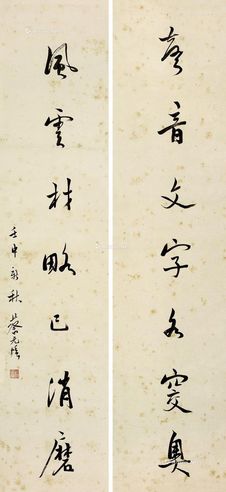 聲音文字各窔奧
風雲材略已消磨
壬申新秋 蔡元培